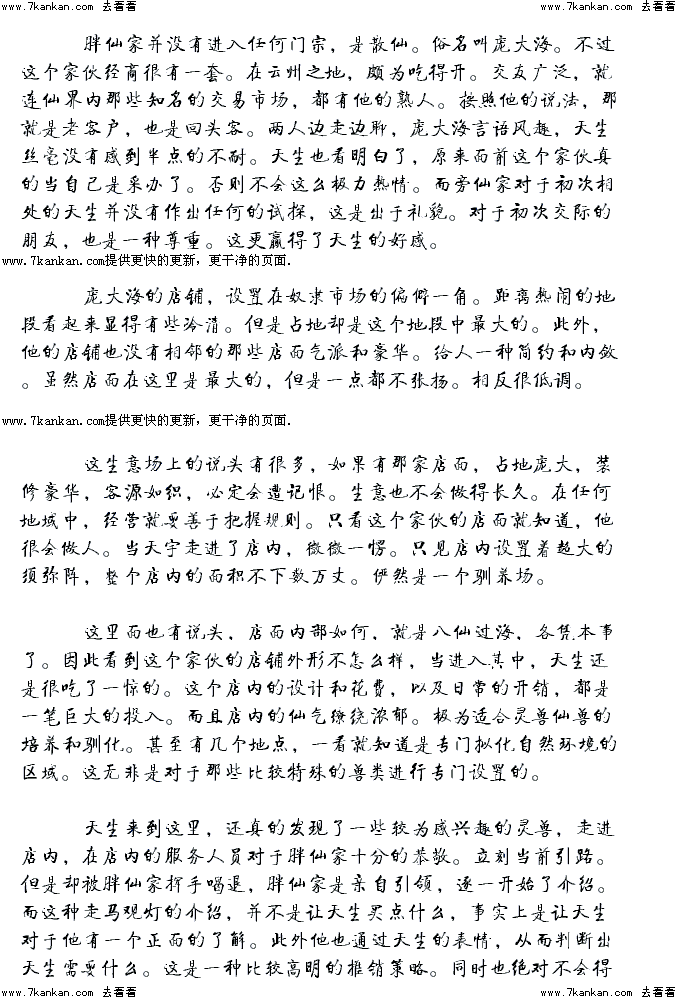 www.7kankan.com 去看看 www.7kankan.com 去看看
胖仙家并没有进入任何门宗，是散仙。俗名叫庞大海。不过
这个家伙经商很有一套。在云州之地，颇为吃得开。交友广泛，就
连仙界内那些知名的交易市场，都有他的熟人。按照他的说法，那
就是老客户，也是回头客。两人边走边聊，庞大海言语风趣，天生
丝毫没有感到半点的不耐。天生也看明白了，原来面前这个家伙真
的当自己是采办了。否则不会这么极力热情。而旁仙家对于初次相
处的天生并没有作出任何的试探，这是出于礼貌。对于初次交际的
朋友，也是一种尊重。这更赢得了天生的好感。
www.7kankan.com提供更快的更新，更干净的页面.
庞大海的店铺，设置在奴隶市场的偏僻一角。距离热闹的地
段看起来显得有些冷清。但是占地却是这个地段中最大的。此外，
他的店铺也没有相邻的那些店面气派和豪华。给人一种简约和内敛
。虽然店面在这里是最大的，但是一点都不张扬。相反很低调。
www.7kankan.com提供更快的更新，更干净的页面.
这生意场上的说头有很多，如果有那家店面，占地庞大，装
修豪华，客源如织，必定会遭记恨。生意也不会做得长久。在任何
地域中，经营就要善于把握规则。只看这个家伙的店面就知道，他
很会做人。当天宇走进了店内，微微一愣。只见店内设置着超大的
须弥阵，整个店内的面积不下数万丈。俨然是一个驯养场。
这里面也有说头，店面内部如何，就是八仙过海，各凭本事
了。因此看到这个家伙的店铺外形不怎么样，当进入其中，天生还
是很吃了一惊的。这个店内的设计和花费，以及日常的开销，都是
一笔巨大的投入。而且店内的仙气缭绕浓郁。极为适合灵兽仙兽的
培养和驯化。甚至有几个地点，一看就知道是专门拟化自然环境的
区域。这无非是对于那些比较特殊的兽类进行专门设置的。
天生来到这里，还真的发现了一些较为感兴趣的灵兽，走进
店内，在店内的服务人员对于胖仙家十分的恭敬。立刻当前引路。
但是却被胖仙家挥手喝退，胖仙家是亲自引领，逐一开始了介绍。
而这种走马观灯的介绍，并不是让天生买点什么，事实上是让天生
对于他有一个正面的了解。此外他也通过天生的表情，从而判断出
天生需要什么。这是一种比较高明的推销策略。同时也绝对不会得
www.7kankan.com 去看看 www.7kankan.com 去看看